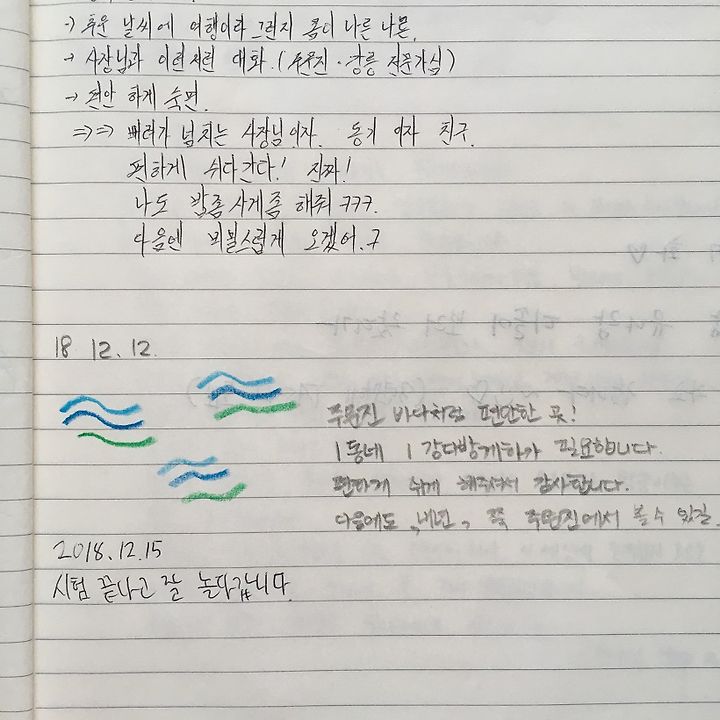 → 추운 날씨에 여행이라 그런지 몸이 나른 나른.
→ 사장님과 이런저런 대화. (주문진·강릉 전문가심)
→ 편안 하게 숙면.
⇒⇒ 배려가 넘치는 사장님이자. 동기 이자 친구.
편하게 쉬다간다! 진짜!
나도 밥좀 사게좀 해줘 ㅋㅋㅋ.
다음엔 비밀스럽게 오겠어.ㅋ
18. 12. 12.
주문진 바다처럼 편안한 곳!
1동네 1 강다방게하가 필요합니다.
편하게 쉬게 해주셔서 감사합니다.
다음에도, 내년, 쭉 주문진에서 볼 수 있길.
2018.12.15
시험 끝나고 잘 놀다갑니다.